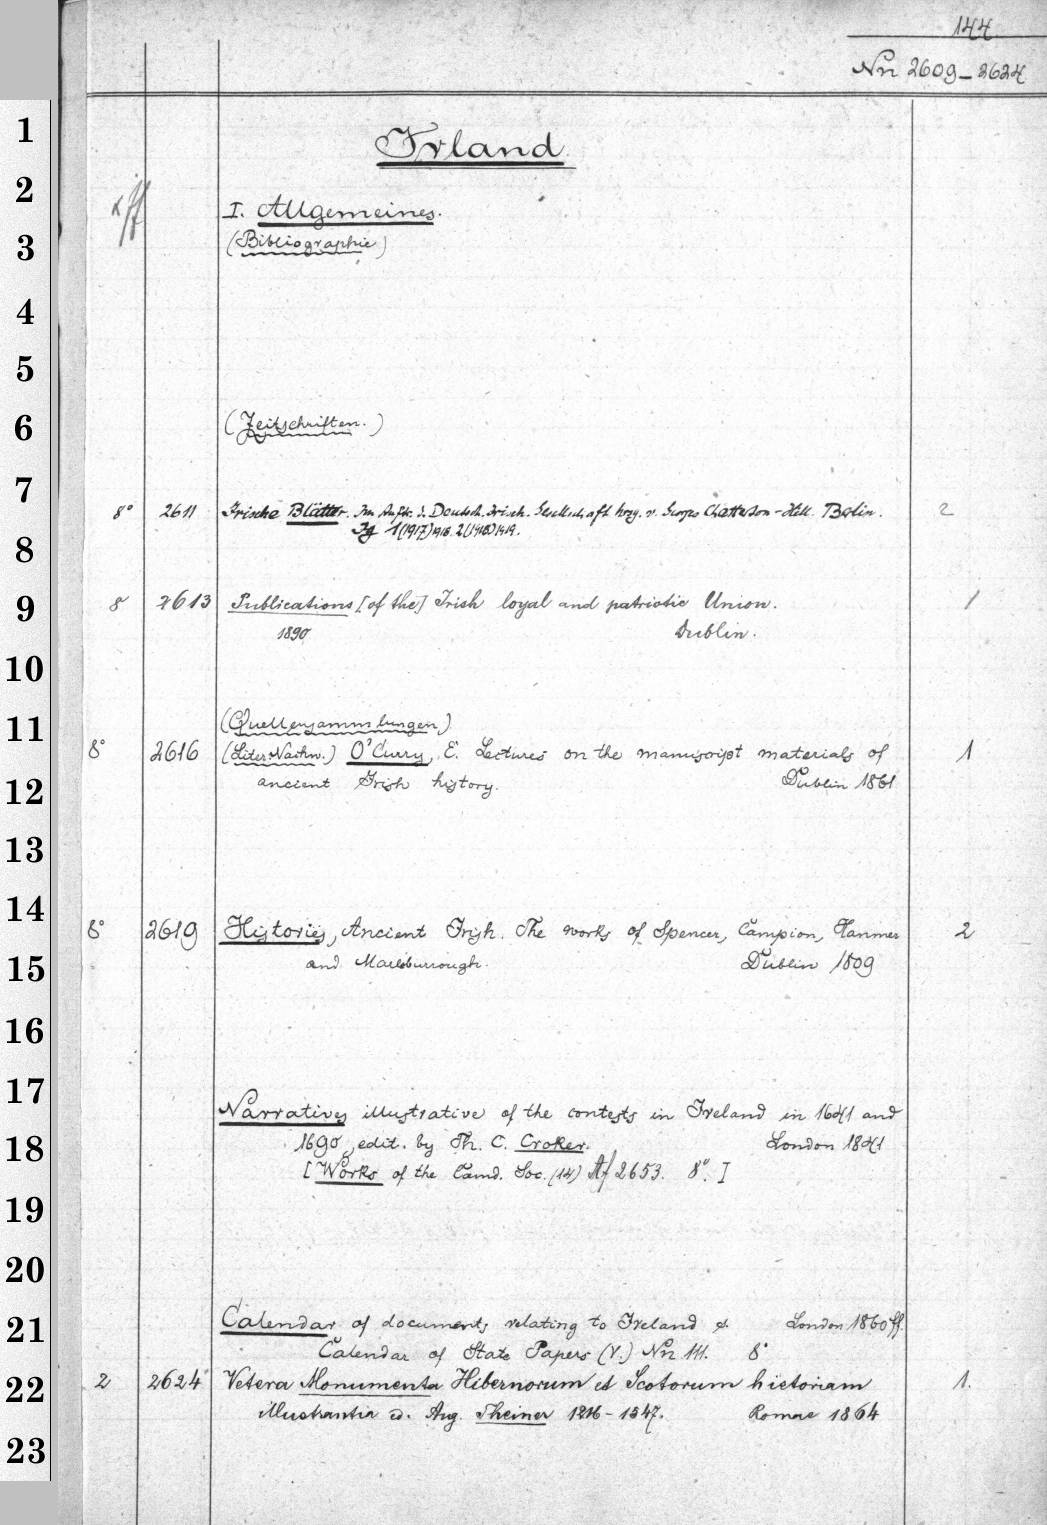 144
Nn 2609-2624
Irland
I. Allgemeines.
(Bibliographie)
(Zeitschriften.)
8° 2611 Irische Blätter. Im Auftr. d. Deutsch. Irisch. Gesellschaft hrsg. v. Georges Chatterton-Hill. Berlin. 2
Jg 1(1917)1918. 2(1918)1919.
8° 2613 Publications [of the] Irish loyal and patriotic Union. 1
1890 Dublin.
(Quellensammlungen)
8° 2616 (Liter. Nachw.) O'Curry, E. Lectures on the manuscript materials of 1
ancient Irish history. Dublin 1861
8° 2619 Histories, Ancient Irish. The works of Spencer, Campion, Hanmer 2
and Marleburrough. Dublin 1809
Narratives illustrative of the contests in Ireland in 1641 and
1690, edit. by Th. C. Croker. London 1841
[Works of the Camd. Soc. (14) Af 2653. 8°.]
Calendar of documents relating to Ireland London 1860 ff.
Calendar of State Papers (V.) Nn 111. 8°
2 2624 Vetera Monumenta Hibernorum et Scotorum historiam 1.
illustrantia ed. Aug. Theiner 1216-1547. Romae 1864
1
2
3
4
5
6
7
8
9
10
11
12
13
14
15
16
17
18
19
20
21
22
23